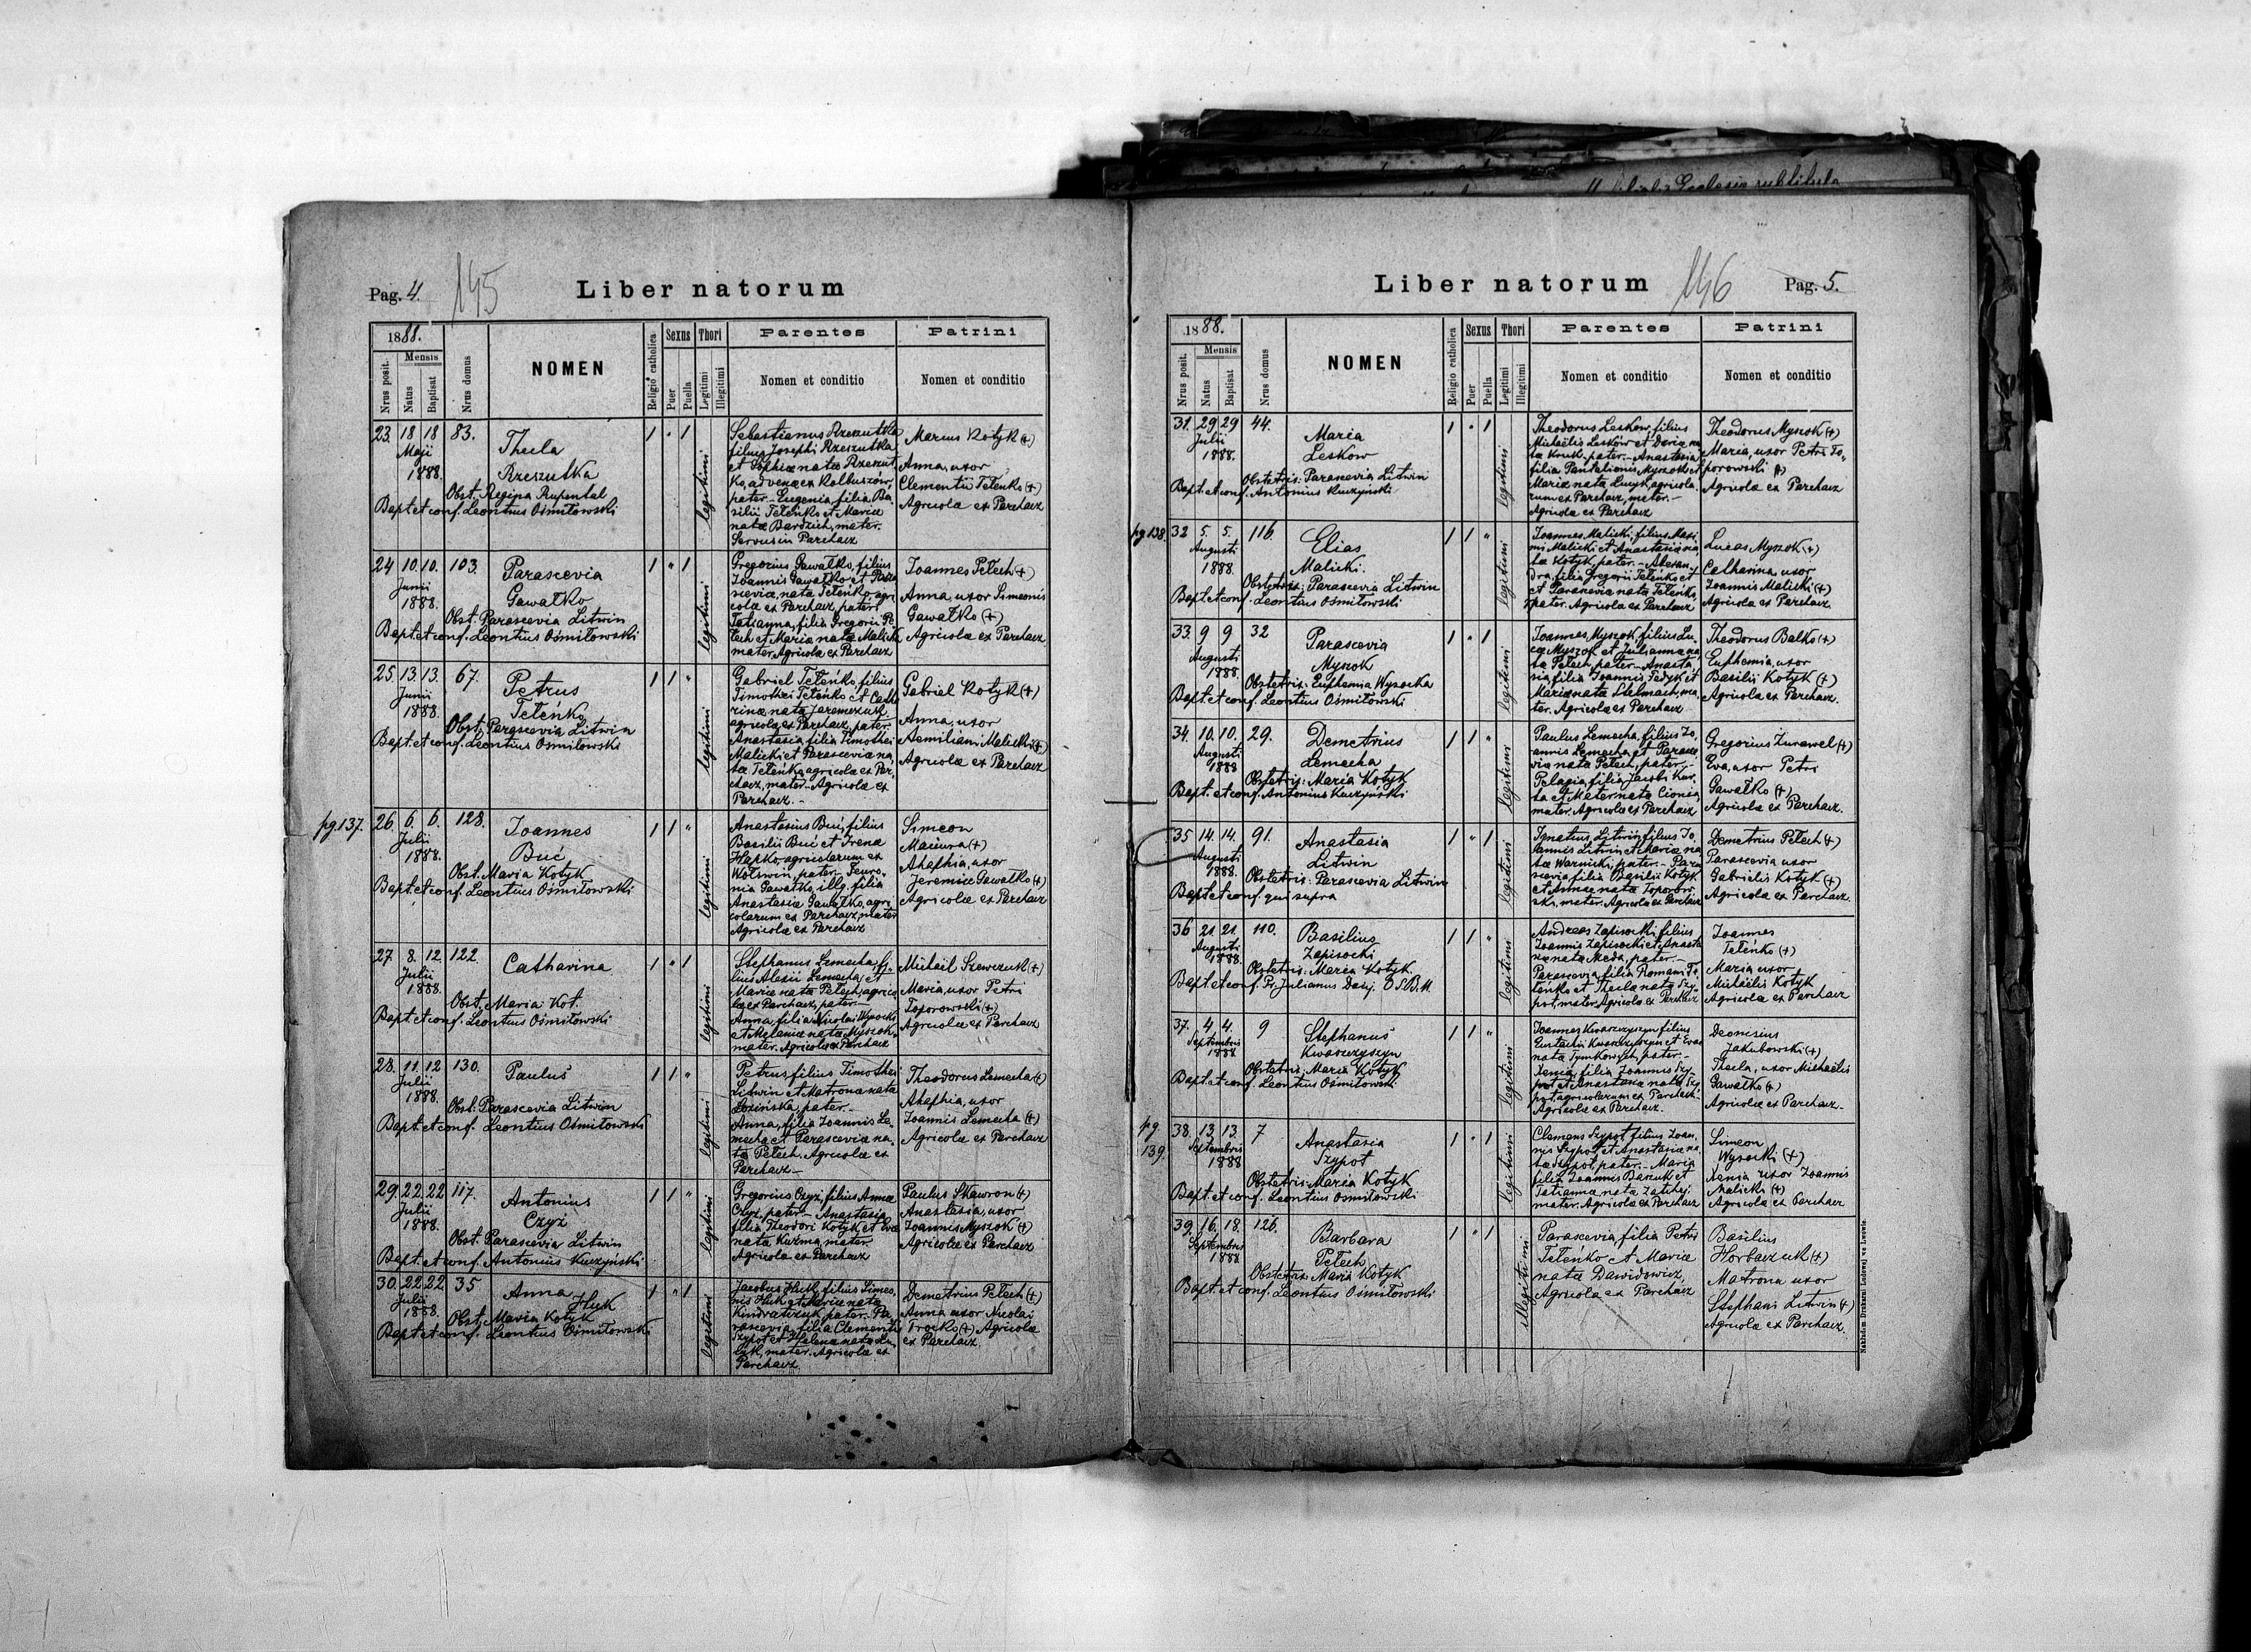 Pag. 4. 145 Liber natorum
1888.
Nrus posit.
Mensis
Natus
Baptisat
Nrus domus
NOMEN
Religio catholica
Sexus
Puer
Puella
Thori
Legitimi
Illegitimi
Parentes
Nomen et conditio
Patrini
Nomen et conditio
23. 18 18 83.
Maji
1888.
Thecla
Rzeszutka
Obst. Regina Rupental
Bapt. et conf. Leontius Ośmiłowski
1 " 1
legitimi
Sebastianus Rzeszutka
filius Josephi Rzeszutka
et Sophiae nata Rzeszut
ko, advena ex Kolbuszów,
pater.- Eugenia filia Ba-
silii Teteńko et Mariae
nata Bardzich, mater.
Servus in Parchacz
Marcus Kotyk (+)
Anna, uxor
Clementii Teteńko (+)
Agricolae ex Parchacz
24 10. 10. 103.
Junii
1888.
Parascevia
Gawałko
Obst. Parascevia Litwin
Bapt. et conf. Leontius Ośmiłowski
1 " 1
legitimi
Gregorius Gawałko, filius
Joannis Gawałko et Paras
cevia, nata Teteńko, agri
colae ex Parchacz, pater.
Tatianna, filia Gregorii Pe
tech et Maria nata Malick
mater. Agricola ex Parchacz
Joannes Petech (+)
Anna, uxor Simeonis
Gawałko (+)
Agricolae ex Parchacz
25 13. 13. 67.
Junii
1888.
Petrus
Teteńko
Obst. Parascevia Litwin
Bapt. et conf. Leontius Ośmiłowski
1 1 "
legitimi
Gabriel Teteńko, filius
Timothei Teteńko et Catha
rinae nata Jaremczuk
agricola ex Parchacz, pater
Anastasia, filia Timothei
Malicki et Parascevia na
ta Teteńko, agricola ex Par,
chacz, mater.- Agricolae ex
Parchacz.-
Gabriel Kotyk (+)
Anna, uxor
Aemiliani Malicki (+)
Agricolae ex Parchacz
pg 137.
26. 6. 6. 128.
Julii
1888.
Joannes
Buć
Obst. Maria Kotyk
Bapt. et conf. Leontius Ośmiłowski
1 1 "
legitimi
Anastasius Buć, filius
Basilii Buć et Irena
Hapko, agricolarum ex
Wolswin, pater.- Feuro-
nia Gawałko, illg. filia
Anastasiae Gawałko, agri
colarum ex Parchacz, mater
Agricolae ex Parchacz
Simeon
Maciura (+)
Ahaphia, uxor
Jeremiae Gawałko (+)
Agricolae ex Parchacz
27 8. 12. 122.
Julii
1888.
Catharina
Obst. Maria Kot.
Bapt. et conf. Leontius Ośmiłowski
1 " 1
legitimi
Stephanus Lemecha, fi-
lius Alexii Lemecha, et
Mariae nata Petech, agrico
lae ex Parchacz, pater.-
Anna, filia Nicolai Wysocki
et Melaniae nata Myszok,
mater. Agricolae ex Parchacz
Michail Szewczuk (+)
Maria, uxor Petri
Toporowski (+)
Agricolae ex Parchacz
28. 11. 12 130.
Julii
1888.
Paulus
Obst. Parascevia Litwin
Bapt. et conf. Leontius Ośmiłowski
1 1 "
legitimi
Petrus, filius Timothei
Litwin et Matrona nata
Lozińska, pater.-
Anna, filia Joannis Le-
mecha et Parasceviae na,
ta Petech. Agricolae ex
Parchacz.-
Theodorus Lemecha (+)
Ahaphia, uxor
Joannis Lemecha (+)
Agricolae ex Parchacz
29. 22. 22 117.
Julii
1888.
Antonius
Czyz
Obst. Parascevia Litwin
Bapt. et conf. Antonius Kuczyński
1 1 "
legitimi
Gregorius Czyz, filius Anna
Czyz, pater.- Anastasia,
filia Theodori Kotyk et Eva
nata Kuźma, mater.
Agricola ex Parchacz
Paulus Skawron (+)
Anastasia, uxor
Joannis Myszok (+)
Agricolae ex Parchacz
30. 22. 22 35
Julii
1888.
Anna Huk
Obst. Maria Kotyk
Bapt. et conf. Leontius Ośmiłowski
1 " 1
legitimi
Jacobus Huk, filius Simeo,
nis Huk et Maria nata
Kindratczuk, pater.- Pa
rascevia, filia Clementi
Szypot et Helena nata
mater. Agricolae ex
Parchacz
Demetrius Petech (+)
Anna uxor Nicolai
Trocko (+) Agricolae
ex Parchacz.
Liber natorum 146 Pag. 5.
1888.
Nrus posit.
Mensis
Natus
Baptisat
Nrus domus
NOMEN
Religio catholica
Sexus
Puer
Puella
Thori
Legitimi
Illegitimi
Parentes
Nomen et conditio
Patrini
Nomen et conditio
31. 29 29 44.
Julii
1888.
Maria
Leskow
Obstetrix: Parascevia Litwin
Bapt. et conf. Antonius Kuczyński
1 " 1
legitimi
Theodorus Leskow, filius
Michaëlis Leskòw et Daria na
ta Kruk, pater.- Anastasia
filia Pantalionis Myszok et
Mariae nata Lucyk, agricola-
rum ex Parchacz, mater.-
Agricola ex Parchacz
Theodorus Myszok (+)
Maria, uxor Petri To-
porowski (+)
Agricolae ex Parchacz
pg 138.
32 5. 5. 116.
Augusti
1888.
Elias
Malicki.
Obstetrix: Parascevia Litwin
Bapt. et conf. Leontius Ośmiłowski
1 1 "
legitimi
Joannes Malicki, filius Maxi
mi Malicki et Anastasia na,
ta Kotyk, pater.- Alexan-
dra, filia Gregorii Teteńko et
et Parascevia nata Teteńko,
mater. Agricola ex Parchacz
Lucas Myszok (+)
Catharina uxor
Joannis Malicki (+)
Agricolae ex Parchacz.
33. 9 9 32
Augusti
1888.
Parascevia
Myszok
Obstetrix: Euphemia Wysocka
Bapt. et conf. Leontius Ośmiłowski
1 " 1
legitimi
Joannes Myszok, filius Lu-
cae Myszok et Julianna na
ta Petech, pater.- Anasta,
sia, filia Joannis Fedyk et
Maria nata Stelmach, ma
ter. Agricolae ex Parchacz
Theodorus Balko (+)
Euphemia, uxor
Basilii Kotyk (+)
Agricolae ex Parchacz.
34. 10. 10. 29.
Augusti
1888
Demetrius
Lemecha
Obstetrix: Maria Kotyk
Bapt. et conf. Antonius Kuczyński
1 1 "
legitimi
Paulus Lemecha, filius Jo,
annis Lemecha, et Parasce
via nata Petech, pater.-
Pelagia, filia Jacobi
et Mater nata
mater. Agricola ex Parchacz
Gregorius Zurawel (+)
Eva, uxor Petri
Gawałko (+)
Agricolae ex Parchacz.
35 14. 14. 91.
Augusti
1888.
Anastasia
Litwin
Obstetrix: Parascevia Litwin
Bapt. et conf. qui supra
1 " 1
legitimi
Ignatius Litwin, filius Jo,
annis Litwin et Mariae na
ta Warnicki, pater.- Para
scevia filia Basilii Kotyk
et Annae nata Toporow
ski, mater. Agricola ex Parchacz
Demetrius Petech (+)
Parascevia uxor
Gabrielis Kotyk (+)
Agricolae ex Parchacz.
36 21 21. 110.
Augusti
1888.
Basilius
Zapisocki
Obstetrix: Maria Kotyk.
Bapt. et conf. Fr. Julianus Dacij. O.S.B.M.
1 1 "
legitimi
Andreas Zapisocki, filius
Joannis Zapisocki et Anasta
siae nata Meda, pater.-
Parascevia, filia Romani Te,
teńko et Thecla nata Szy-
pot, mater. Agricola ex Parchacz
Joannes
Teteńko (+)
Maria uxor
Michaëlis Kotyk
Agricolae ex Parchacz
37. 4 4. 9
Septembris
1888
Stephanus
Kwaszczyszyn
Obstetrix: Maria Kotyk
Bapt. et conf. Leontius Ośmiłowski
1 1 "
legitimi
Joannes Kwaszczyszyn filius
Eustachii Kwaszczyszyn et Eva
nata Tymkowych, pater.-
Xenia, filia Joannis Szy-
pot et Anastasiae nata Szy
pot, agricolarum ex Parchacz.
Agricola ex Parchacz.
Deonisius
Jakubowski (+)
Thecla, uxor Michaëlis
Gawałko (+)
Agricolae ex Parchacz.
pg
139.
38. 13. 13. 7
Septembris
1888
Anastasia
Szypot
Obstetrix: Maria Kotyk
Bapt. et conf. Leontius Ośmiłowski
1 " 1
legitimi
Clemens Szypot filius Joan,
nis Szypot, et Anastasiae na
ta Szypot, pater.- Maria
filia Joannis et
Tatianna nata
mater. Agricola ex Parchacz
Simeon
Wysocki (+)
Xenia uxor Joannis
Malicki (+)
Agricolae ex Parchacz
39. 16. 18. 126.
Septembris
1888
Barbara
Petech
Obstetrix: Maria Kotyk
Bapt. et conf. Leontius Ośmiłowski
1 " 1
illegitimi
Parascevia, filia Petri
Teteńko et Mariae
nata Dawidowicz,
Agricola ex Parchacz
Basilius
Horbaczuk (+)
Matrona uxor
Stephani Litwin (+)
Agricolae ex Parchacz.
Nakładem Drukarni Ludowej we Lwowie.